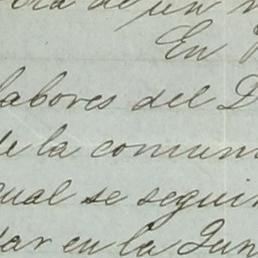 de un
En
labores del D
de la comun
cual se segui
dar en la Jun